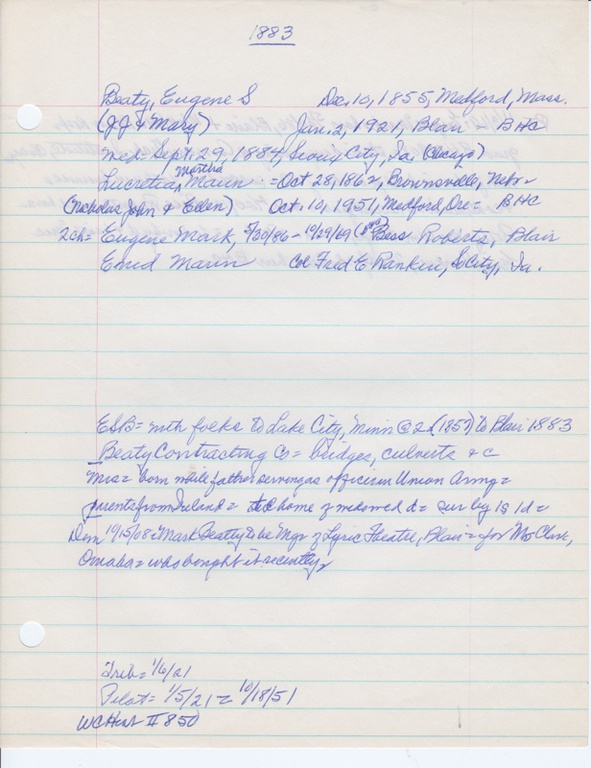 1883
Beaty, Eugene S Dec. 10, 1855, Medford, Mass.
(J J & Mary) Jan. 2, 1921, Blair BHC
med. Sept. 29, 1884, Sioux City, Ia. (Chicago)
Lucretia, Martha Marin - Oct 28, 1862, Brownsville, Nebr =
(Nicholas John & Ellen) Oct. 10, 1951, Medford, Ore = BHC
2 ch = Eugene Mark, 5/30/86 - 10/29/69 Bess Roberts, Blair
Enid Marin Col Fred E Rankin, So City, Ia.
ESB = with folks to Lake City, Minn @ 2 (1857) to Blair 1883
Beaty Contracting Co = bridges, culverts & c
Mrs = born while father serving as officer in Union Army =
parents from Ireland = home of widowed d = sur by 1s 1d =
Dem 1915/08 = Mark Beatty to be Mgr of Lyric Theatre, Blair = for Mr Clark,
Omaha = who bought it recently =
Trib = 1/6/21
Pilot = 1/5/21 = 10/18/51
WCHist II 850